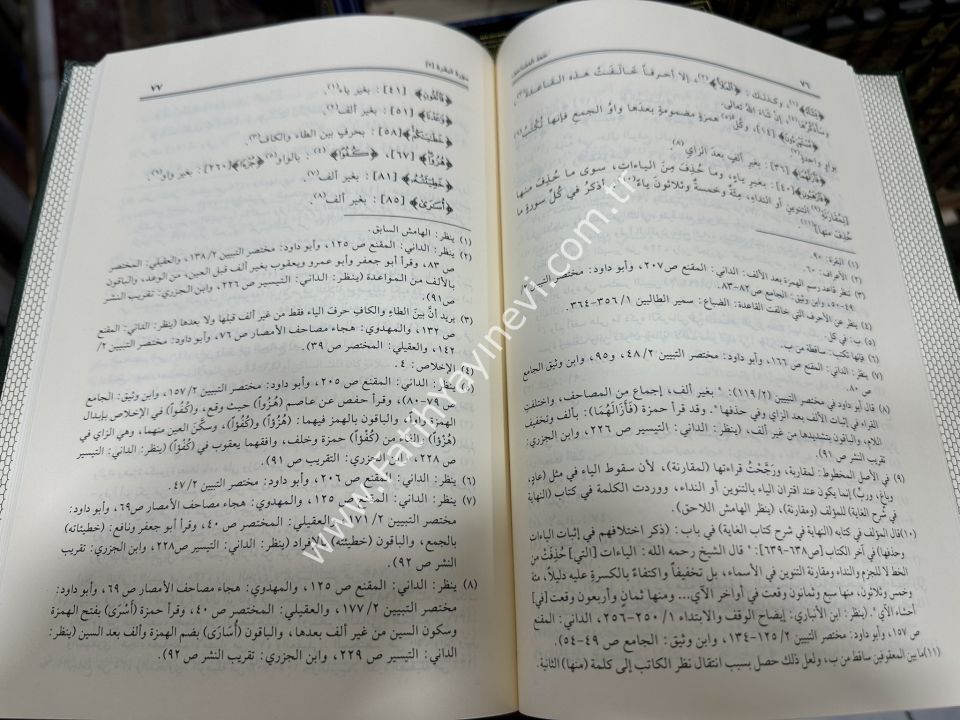 ٧٦
﴿ثَلَاثَةَ﴾(١)، وكذلك: ﴿ثَلَاثاً﴾(٢)، إلا أحرفاً خَالَفَتْ هذه القاعدة(٣)،
وسأذكرها(٤) إن شاء الله تعالى.
﴿مُسْتَهْزِءُونَ﴾ [١٤]، وكل(٥) همزة مضمومةٍ بعدها واوُ الجمع فإنها تُكتَبُ(٦)
بواوٍ واحدة(٧).
﴿فَأَزَلَّهُمَا﴾ [٣٦]: بغير ألفٍ بعد الزاي(٨).
﴿فَارْهَبُونِ﴾ [٤٠]: بغير ياءٍ، وما حُذِفَ مِنَ الياءات، سوى ما حُذِفَ منها
[لِمُقارنَة](٩) التنوين أو النداءِ، مِئَة وخمسةٌ وثلاثونَ ياءً(١٠)، وأذكرُ في كُلِّ سورةٍ ما
حُذِفَ [منها](١١).
(١) البقرة: ٩٠.
(٢) الأعراف: ٦٠.
(٣) تنظر قاعدة رسم الهمزة بعد الألف: الداني: المقنع ص٢٠٧، وأبو داود: مختصر التبيين ٢/
٤٩-٥١، وابن وثيق: الجامع ص٨٢-٨٣.
(٤) ينظر عن الأحرف التي خالفت القاعدة: الضباع: سمير الطالبين ١/ ٣٥٦-٣٦٤.
(٥) ب: في كل.
(٦) فإنها تكتب: ساقطة من ب.
(٧) ينظر: الداني: المقنع ص ١٦٦، وأبو داود: مختصر التبيين ٢/ ٤٨، و٩٥، وابن وثيق الجامع
ص ٨٠.
(٨) قال أبو داود في مختصر التبيين (٢/ ١١٩): " بغير ألف، إجماع من المصاحف، واختلفت
القراء في إثبات الألف بعد الزاي وفي حذفها". وقد قرأ حمزة (فَأَزَالَهُمَا): بألف وتخفيف
اللام، والباقون بتشديدها من غير ألف، (ينظر: الداني: التيسير ص ٢٢٦، وابن الجزري:
تقريب النشر ص ٩١).
(٩) في الأصل المخطوط: لمقارنة، ورَجَّحْتُ قراءتها (لمقارنة)، لأن سقوط الياء في مثل (عادٍ،
وباغٍ، وربِّ) إنما يكون عند اقتران الياء بالتنوين أو النداء، ووردت الكلمة في كتاب (النهاية
في شرح الغاية) للمؤلف (ومقارنة)، (ينظر الهامش اللاحق).
(١٠)قال المؤلف في كتابه (النهاية في شرح كتاب الغاية) في باب: (ذكر اختلافهم في إثبات الياءات
وحذفها) في آخر الكتاب [ص٦٣٨-٦٣٩]: " قال الشيخ رحمه الله: الياءات [التي] حُذِفَتْ من
الخط لا للجزم والنداء ومقارنة التنوين في الأسماء، بل تخفيفاً واكتفاءً بالكسرة عليه دليلاً، مئة
وخمس وثلاثون، منها سبع وثمانون وقعت في أواخر الآي... ومنها ثمانٍ وأربعون وقعت [في]
أحشاء الآي". (ينظر: ابن الأنباري: إيضاح الوقف والابتداء ١/ ٢٥٠-٢٥٦، الداني: المقنع
ص ١٥٧، وأبو داود: مختصر التبيين ٢/ ١٢٥-١٣٤، وابن وثيق: الجامع ص ٤٩-٥٤).
(١١)ما بين المعقوفين ساقط من ب، ولعل ذلك حصل بسبب انتقال نظر الكاتب إلى كلمة (منها) الثانية.
سورة البقرة (٢) ٧٧
﴿فَاتَّقُونِ﴾ [٤١]: بغير ياء(١).
﴿وَٰعَدْنَا﴾ [٥١]: بغير ألف(٢).
﴿خَطَٰيَٰكُمْ﴾ [٥٨]: بحرفٍ بين الطاء والكاف(٣).
﴿هُزُوًا﴾ [٦٧]، ﴿كُفُوًا﴾(٤): بالواو(٥) ﴿جُزْءًا﴾ [٢٦٠]: بغير واو(٦).
﴿خَطِيئَتُهُ﴾ [٨١]: بغير ألف(٧).
﴿أُسَٰرَىٰ﴾ [٨٥]: بغير ألف(٨).
(١) ينظر: الهامش السابق.
(٢) ينظر: الداني: المقنع ص ١٢٥، وأبو داود: مختصر التبيين ٢/ ١٣٨، والعقيلي: المختصر
ص ٨٣، وقرأ أبو جعفر وأبو عمرو ويعقوب بغير ألف قبل العين، من الوعد، والباقون
بالألف من المواعدة (ينظر: الداني: التيسير ص ٢٢٦، وابن الجزري: تقريب النشر
ص ٩١).
(٣) يريد أنَّ بينَ الطاءِ والكافِ حرفَ الياء فقط من غير ألف قبلها ولا بعدها (ينظر: الداني: المقنع
ص ١٣٢، والمهدوي: هجاء مصاحف الأمصار ص ٧٦، وأبو داود: مختصر التبيين ٢/
١٤٢، والعقيلي: المختصر ص ٣٩).
(٤) الإخلاص: ٤.
(٥) ينظر: الداني: المقنع ص ٢٠٥، وأبو داود: مختصر التبيين ٢/ ١٥٧، وابن وثيق: الجامع
ص ٧٩-٨٠)، وقرأ حفص عن عاصم (هُزُوًا) حيث وقع، و(كُفُوًا) في الإخلاص بإبدال
الهمزة واواً، والباقون بالهمز فيهما: (هُزُؤًا) و(كُفُؤًا)، وسكَّنَ العين منهما، وهي الزاي في
(هُزْؤًا) والفاء من (كُفْؤًا) حمزة وخلف، وافقهما يعقوب في (كُفْؤًا) (ينظر: الداني: التيسير
ص ٢٢٨، وابن الجزري: التقريب ص ٩١).
(٦) ينظر: الداني: المقنع ص ٢٠٦، وأبو داود: مختصر التبيين ٢/ ٤٧.
(٧) ينظر: الداني: المقنع ص ١٢٥، والمهدوي: هجاء مصاحف الأمصار ص٦٩، وأبو داود:
مختصر التبيين ٢/ ١٧١، والعقيلي: المختصر ص ٤٠، وقرأ أبو جعفر ونافع: (خطيئاته)
بالجمع، والباقون (خطيئته) بالإفراد (ينظر: الداني: التيسير ص٢٢٨، وابن الجزري: تقريب
النشر ص ٩٢).
(٨) ينظر: الداني: المقنع ص ١٢٥، والمهدوي: هجاء مصاحف الأمصار ص ٦٩، وأبو داود:
مختصر التبيين ٢/ ١٧٧، والعقيلي: المختصر ص ٤٠، وقرأ حمزة (أَسْرَى) بفتح الهمزة
وسكون السين من غير ألف بعدها، والباقون (أُسَارَى) بضم الهمزة وألف بعد السين (ينظر:
الداني: التيسير ص ٢٢٩، وابن الجزري: تقريب النشر ص ٩٢).
www.Fatihyayinevi.com.tr